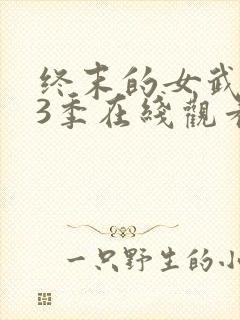 终末的女武
3季在綫觀
一只野生的小